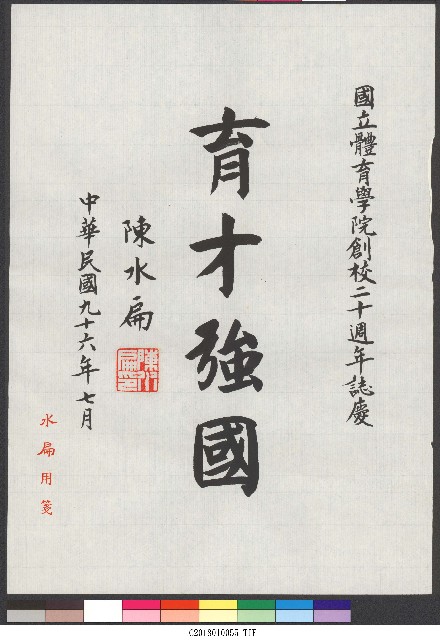 國立體育學院創校二十週年誌慶
育才強國
陳水扁
中華民國九十六年七月
水扁用箋
C2013010055.TIF